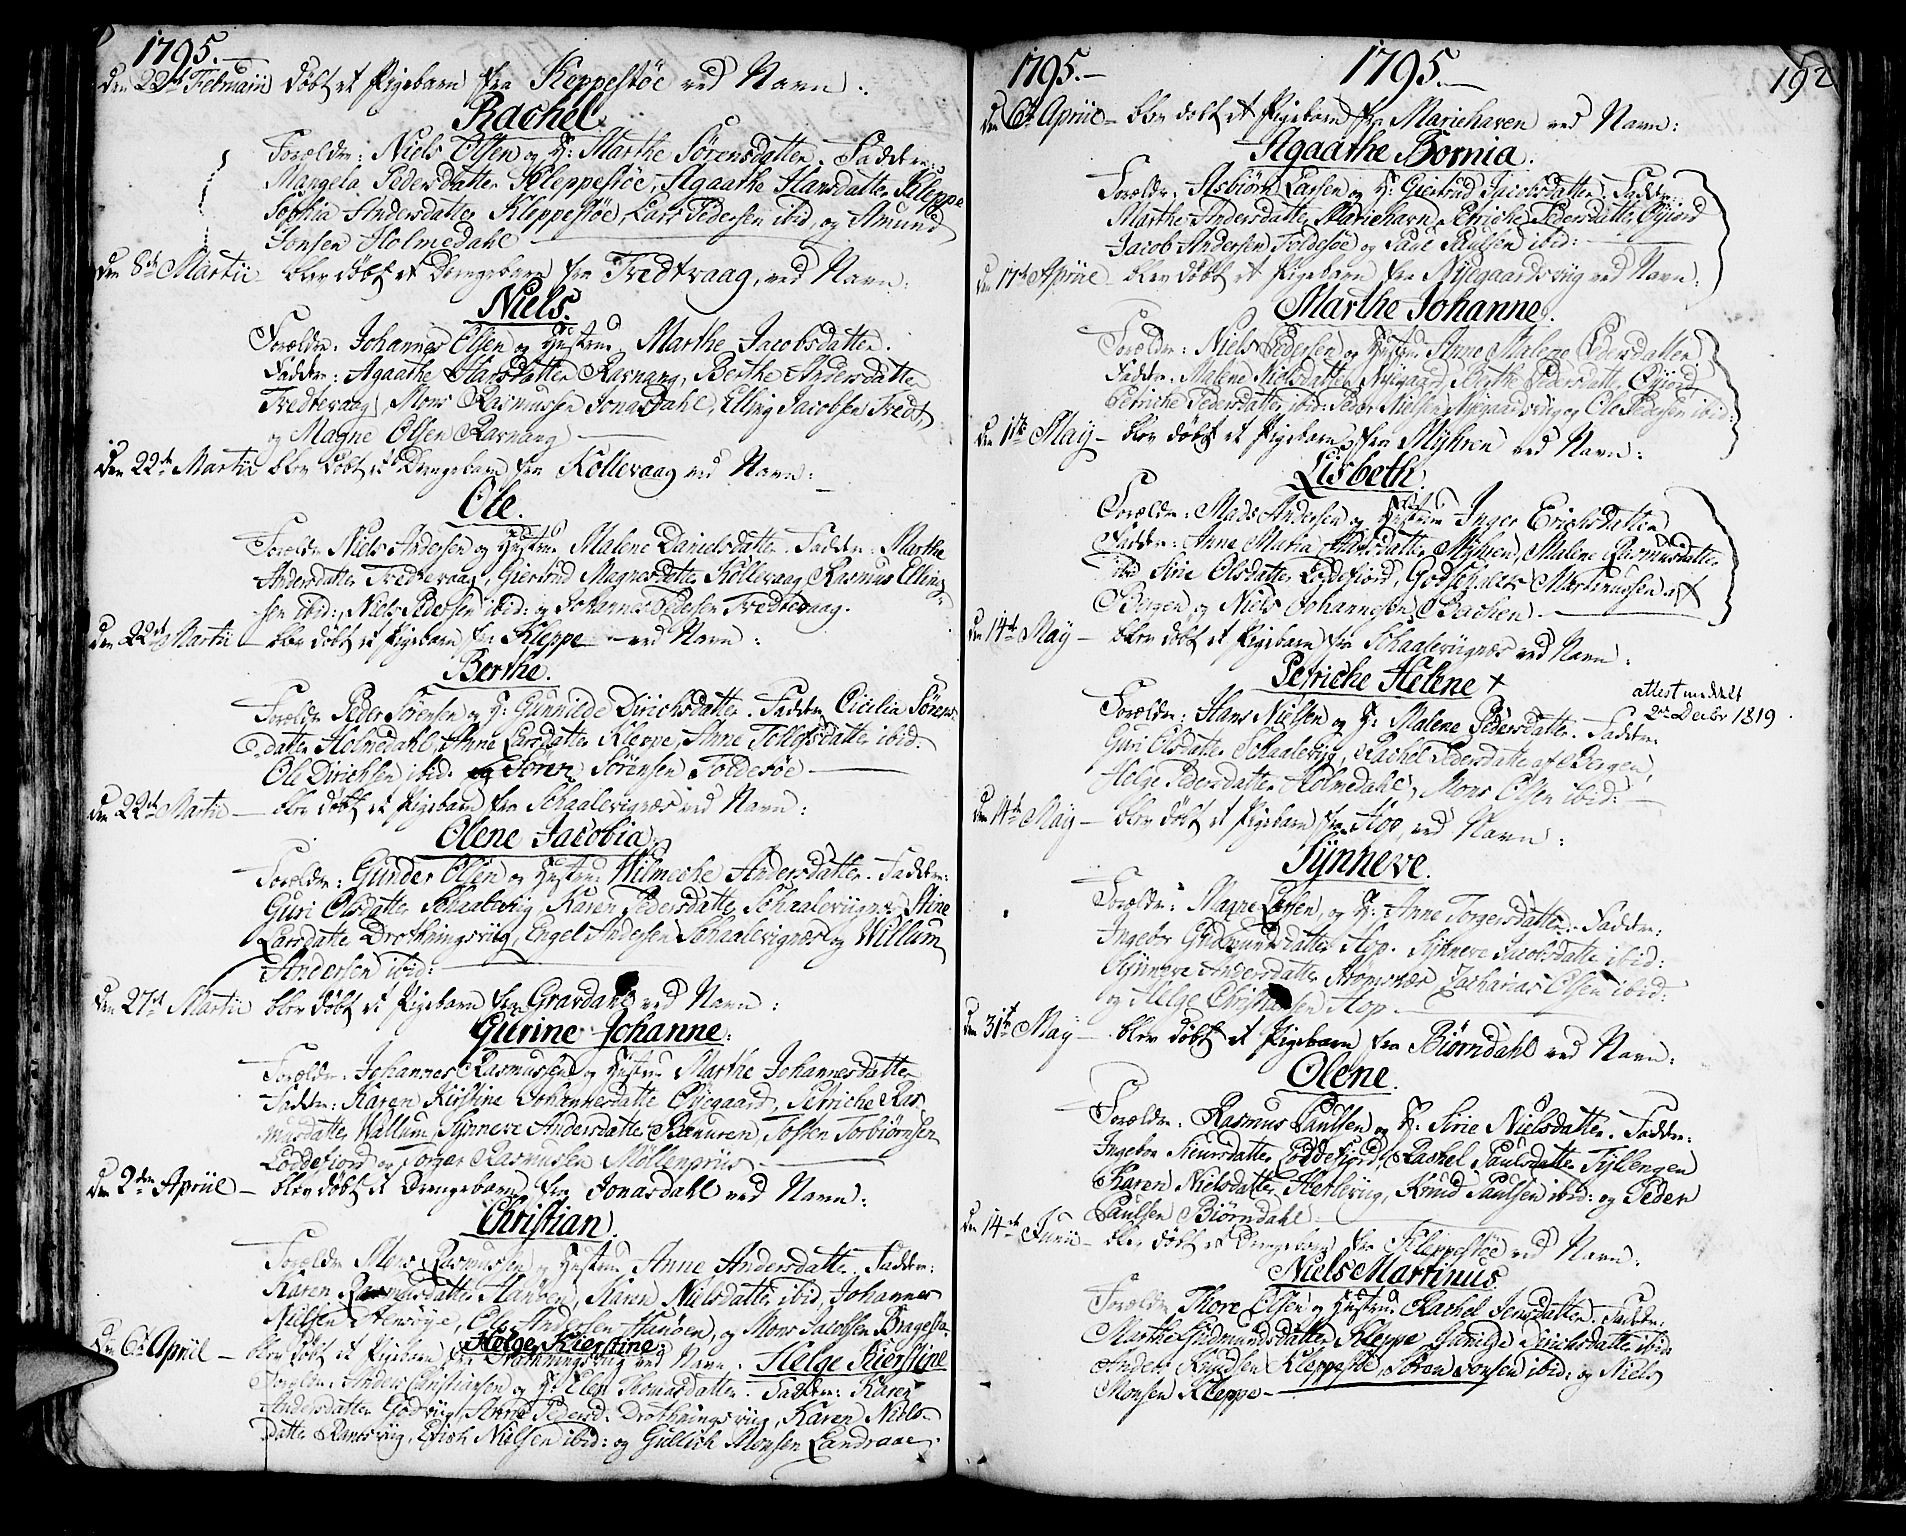 1795.
den 22de Februarii døbt et Pigebarn fra Kleppestøe ved Navn:
Rachel
Forældre: Niels Olsen og H: Marthe Sørensdatter. Faddere:
Mangela Pedersdatter Kleppestøe, Agaathe Hansdatter Kleppe
Sophia Andersdatter Kleppestøe, Lars Pedersen ibid, og Amund
Jonsen Holmedahl
den 8de Martii blev døbt et Drengebarn fra Tredtvaag, ved Navn:
Niels.
Forældre: Johannes Olsen og Hustrue Marthe Jacobsdatter.
Faddere: Agaathe Hansdatter Ravnang, Berthe Andersdatter
Tredtevaag, Mons Rasmussen Jonasdahl, Elling Jacobsen Tredt,
og Magne Olsen Ravnang
den 22de Martii blev døbt et Drengebarn fra Kollevaag ved Navn:
Ole.
Forældre Niels Andersen og Hustrue Malene Danielsdatter. Faddere: Marthe
Andersdatter Tredtevaag, Giertrud Magnesdatter Kollevaag, Rasmus Elling-
sen ibid:, Niels Pedersen ibid: og Johannes Pedersen Tredtevaag.
den 22de Martii blev døbt et Pigebarn fra Kleppe ved Navn:
Berthe.
Forældre Peder Sørensen og H: Gunnilde Dirichsdatter. Faddere Cicilia Sørens-
datter Holmedahl, Anne Larsdatter Kleppe, Anne Tollefsdatter ibid.
Ole Dirichsen ibid. og Søren Sørensen Foldesøe
den 22de Martii blev døbt et Pigebarn fra Schaalevignæs ved Navn:
Olene Jacobia.
Forældre: Gunder Olsen og Hustrue Wilmeche Andersdatter. Faddere:
Guri Olsdatter Schaalevig, Karen Pedersdatter Schaaleviignæs, Stine
Larsdatter Drothningsviig, Engel Andersen Schaalevignæs og Willum
Andersen ibid:
den 27de Martii blev døbt et Pigebarn fra Gravdahl ved Navn:
Gurine Johanne:
Forældre: Johannes Rasmussen og Hustrue Marthe Johannesdatter
Faddere: Karen Kirstine Johannesdatter Øvregaard, Petriche Ras-
musdatter Wallum, Synneve Andersdatter, Tosten Torbiørnsen
Loddefiord og Torger Rasmussen Møllenpriis
den 2den Apriil blev døbt et Drengebarn fra Jonasdahl ved Navn:
Christian.
Forældre Mons Rasmussen og Hustrue Anne Andersdatter. Faddere:
Karen Rasmusdatter Hanøen, Karen Nielsdatter ibid, Johannes
Nielsen, Ole Andersen Hanøen, og Mons Jacobsen
den 6te Apriil blev døbt et Pigebarn fra Drothningsviig ved Navn: Helge Kierstine
Forældre: Anders Christiansen og H: Elen Thomasdatter. Faddere: Karen
Andersdatter Godviig, Anne Pedersd: Drothningsviig, Karen Niels-
datter, Erich Nielsen ibid: og Gullich Monsen
1795.
1795.
192
den 6te Apriil blev døbt et Pigebarn fra Mariehaven ved Navn:
Agaathe Bornia.
Forældre: Asbiørn Larsen og H: Giertrud Jacobsdatter. Faddere
Marthe Andersdatter Mariehavn, Petriche Pedersdatter
Jacob Andersen Foldesøe og Paul Paulsen ibid:
den 17de Apriil blev døbt et Pigebarn fra Nyegaardsviig ved Navn:
Marthe Johanne.
Forældre: Niels Pedersen og Hustrue Anne Malene Pedersdatter
Faddere: Malene Nielsdatter, Berthe Pedersdatter
Petriche Pedersdatter ibid: Peder Nielsen Nyegaardsviig og Ole Pedersen ibid:
den 1ste May blev døbt et Pigebarn fra Myhren ved Navn:
Lisbeth.
Forældre: Mads Andersen og Hustrue Inger Erichsdatter
Faddere: Anne Maria Madsdatter Myhren, Malene Rasmusdatter
ibid Sirie Olsdatter Loddefiord, Martinussen af
Bergen og Niels Johannesen Bachen.
den 14de May blev døbt et Pigebarn fra Schaaleviignæs ved Navn:
Petriche Helene +
attest meddelt
2de Decbr 1819.
Forældre: Hans Nielsen og H: Malene Pedersdatter. Faddere
Guri Olsdatter Schaalevig, Rachel Pedersdatter af Bergen,
Helge Pedersdatter Holmedahl, Mons Olsen ibid:
den 14de May blev døbt et Pigebarn fra Hop, ved Navn:
Synneve.
Forældre: Magne Larsen, og H: Anne Torgersdatter. Faddere:
Ingebr Gudmundsdatter Hop. Synneve Jacobsdatter ibid:
Synneve Andersdatter, Zacharias Olsen ibid:
og Helge Christiansen Hop.
den 31te May blev døbt et Pigebarn fra Biørndahl ved Navn:
Olene.
Forældre: Rasmus Paulsen og H: Sirie Nielsdatter. Faddere:
Ingebor Loddefiord, Rachel Paulsdatter
Karen Nielsdatter Hetleviig, Knud Paulsen ibid: og Peder
Paulsen Biørndahl
den 14de Junii blev døbt et Drengebarn fra Kleppestøe ved Navn:
Niels Martinus
Forældre Thore Olsen og Hustrue Rachel Jensdatter. Faddere:
Marthe Gudmundsdatter Kleppe, Gunilde Dirichsdatter ibid:
Anders Knudsen Kleppestøe, Søren Jonsen ibid: og Niels
Monsen Kleppe